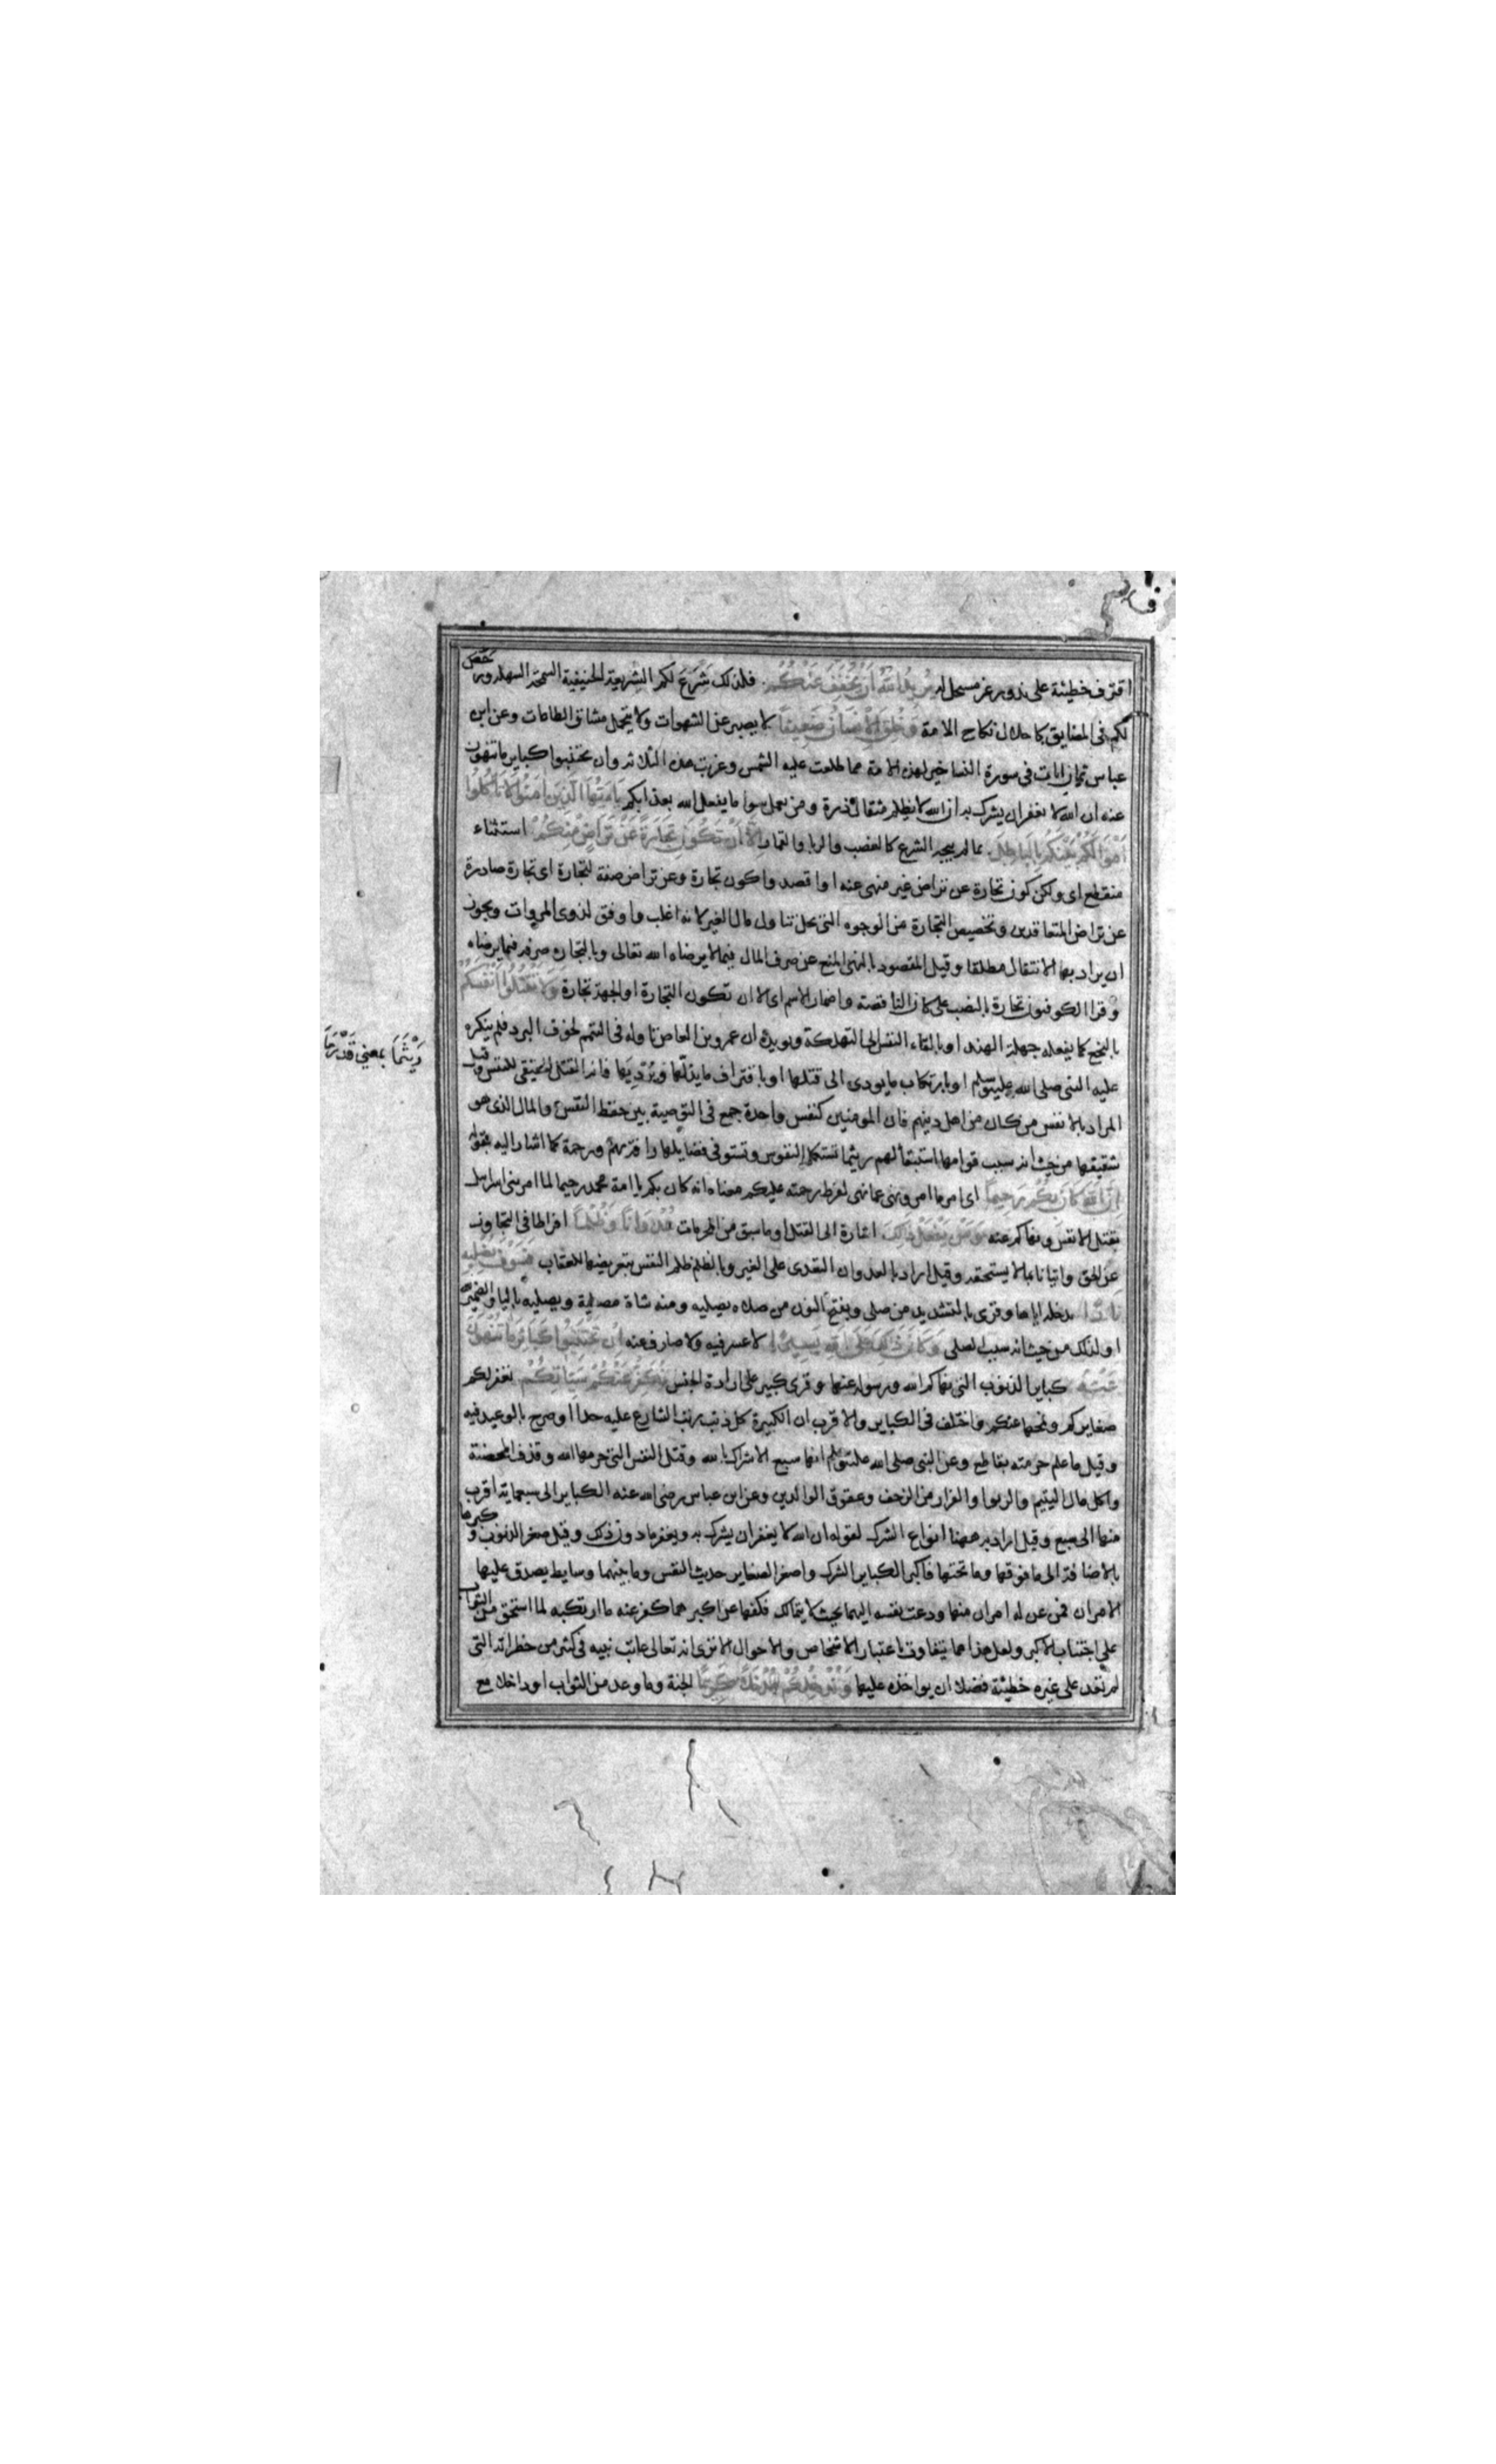 اقترف خطيئة على ندور غير مستحل له يريد الله ان يخفف عنكم فلذلك شرع لكم الشريعة الحنيفية السمحة السهلة ورخص
لكم فى المضايق كاحلال نكاح الامة وخلق الانسان ضعيفا لا يصبر عن الشهوات ولا يتحمل مشاق الطاعات وعن ابن
عباس ثمان ايات فى سورة النسا خير لهذه الامة مما طلعت عليه الشمس وغربت هذه الثلاثة وان تجتنبوا كباير ما تنهون
عنه ان الله لا يغفر ان يشرك به ان الله لا يظلم مثقال ذرة ومن يعمل سوا ما يفعل الله بعذابكم يا ايها الذين امنوا لا تاكلوا
اموالكم بينكم بالباطل بما لم يبحه الشرع كالغصب والربا والقمار الا ان تكون تجارة عن تراض منكم استثناء
منقطع اى ولكن كون تجارة عن تراض غير منهى عنه او اقصدوا كون تجارة وعن تراض صفة لتجارة اى تجارة صادرة
عن تراض المتعاقدين وتخصيص التجارة من الوجوه التى يحل تناول مال الغير لانه اغلب واوفق لذوى المروات ويجوز
ان يراد بها الانتقال مطلقا وقيل المقصود بالنهى المنع عن صرف المال فيما لا يرضاه الله تعالى وبالتجارة صرفه فيما يرضاه
وقرا الكوفيون تجارة بالنصب على كان الناقصة واضمار الاسم اى الا ان تكون التجارة او الجهة تجارة ولا تقتلوا انفسكم
بالبخع كما يفعله جهلة الهند او بالقاء النفس الى التهلكة ويويده ان عمرو بن العاص تاوله فى التيمم لخوف البرد فلم ينكره
عليه النبى صلى الله عليه وسلم او بارتكاب ما يودى الى قتلها او باقتراف ما يذللها ويرديها فانه القتل الحقيقى للنفس وقيل
المراد بالانفس من كان من اهل دينهم فان المومنين كنفس واحدة جمع فى التوصية بين حفظ النفس والمال الذى هو
شقيقها من حيث انه سبب قوامها استبقا لهم ريثما تستكمل النفوس وتستوفى فضايلها رافة بهم ورحمة كما اشار اليه بقوله
ان الله كان بكم رحيما اى امر ما امر ونهى عما نهى لفرط رحمته عليكم معناه انه كان بكم يا امة محمد رحيما لما امر بنى اسرايل
بقتل الانفس ونهاكم عنه ومن يفعل ذلك اشارة الى القتل او ما سبق من المحرمات عدوانا وظلما افراطا فى التجاوز
عن الحق واتيانا بما لا يستحقه وقيل اراد بالعدوان التعدى على الغير وبالظلم ظلم النفس بتعريضها للعقاب فسوف نصليه
نارا ندخله اياها وقرى بالتشديد من صلى وبفتح النون من صلاه يصليه ومنه شاة مصلية ويصليه باليا والضمير لله
او لذلك من حيث انه سبب الصلى وكان ذلك على الله يسيرا لا عسر فيه ولا صارف عنه ان تجتنبوا كبائر ما تنهون
عنه كباير الذنوب التى نهاكم الله ورسوله عنها وقرى كبير على ارادة الجنس نكفر عنكم سياتكم نغفر لكم
صغايركم ونمحها عنكم واختلف فى الكباير والاقرب ان الكبيرة كل ذنب رتب الشارع عليه حدا او صرح بالوعيد فيه
وقيل ما علم حرمته بقاطع وعن النبى صلى الله عليه وسلم انها سبع الاشراك بالله وقتل النفس التى حرمها الله وقذف المحصنة
واكل مال اليتيم والربوا والفرار من الزحف وعقوق الوالدين وعن ابن عباس رضى الله عنه الكباير الى سبعماية اقرب
منها الى سبع وقيل اراد به ههنا انواع الشرك لقوله ان الله لا يغفر ان يشرك به ويغفر ما دون ذلك وقيل صغر الذنوب وكبرها
بالاضافة الى ما فوقها وما تحتها فاكبر الكباير الشرك واصغر الصغاير حديث النفس وما بينهما وسايط يصدق عليها
الامران فمن عن له امران منها ودعت نفسه اليهما بحيث لا يتمالك فكفها عن اكبرهما كفر عنه ما ارتكبه لما استحق من الثواب
على اجتناب الاكبر ولعل هذا مما يتفاوت باعتبار الاشخاص والاحوال الا ترى انه تعالى عاتب نبيه فى كثير من خطراته التى
لم تعد على غيره خطيئة فضلا ان يواخذه عليها وندخلكم مدخلا كريما الجنة وما وعد من الثواب او ادخالا مع
رَيْثَمَا بمعنى قَدْرَ مَا